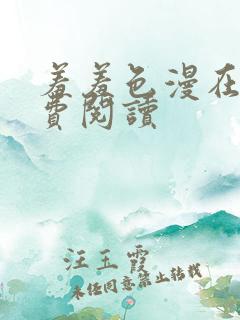 羞羞色漫在
费閱讀
汪玉霞
未经同意禁止转载